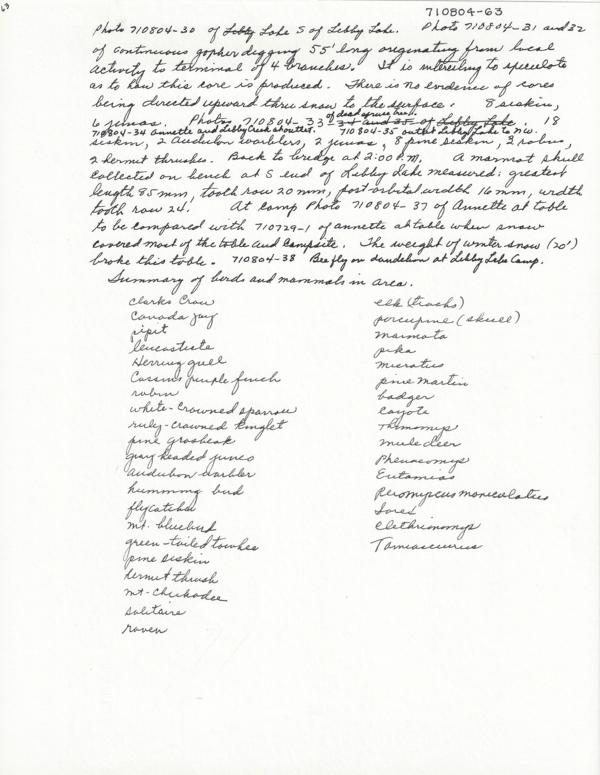 63
710804-63
Photo 710804-30 of Libby Lake S of Libby Lake. Photo 710804-31 and 32
of continuous gopher digging 55' long originating from local
activity to terminal of 4 branches. It is interesting to speculate
as to how this core is produced. There is no evidence of cores
being directed upward thru snow to the surface. 8 siskin,
of dead spruce tree.
6 juncos. Photos 710804-33-34 and 35 of Libby Lake. 18
710804-34 Annette and Libby Creek shoutlet. 710804-35 outlet Libby Lake to NW.
siskin, 2 Audubon warblers, 2 juncos, 8 pine siskin, 2 robins,
2 hermit thrushes. Back to bridge at 2:00 P.M. A marmot skull
collected on bench at S end of Libby Lake measured: greatest
length 85 mm, tooth row 20 mm, post orbital width 16 mm, width
tooth row 24. At camp Photo 710804-37 of Annette at table
to be compared with 710729-1 of Annette at table when snow
covered most of the table and campsite. The weight of winter snow (20')
broke this table. 710804-38 Bee fly on dandelion at Libby Lake Camp.
Summary of birds and mammals in area.
Clarks Crow
Canada jay
pipit
leucosticte
Herring gull
Cassins purple finch
robin
white-crowned sparrow
ruby-crowned kinglet
pine grosbeak
gray headed junco
Audubon warbler
humming bird
flycatcher
mt. bluebird
green-tailed towhee
pine siskin
hermit thrush
mt-chickadee
solitaire
raven
elk (tracks)
porcupine (skull)
marmota
pika
microtus
pine martin
badger
coyote
Thomomys
mule deer
Phenacomys
Eutamias
Peromyscus maniculatus
Sorex
Clethrionomys
Tamiasciurus